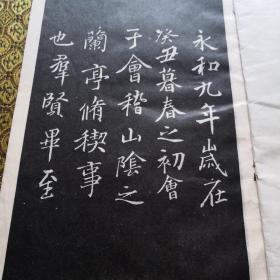 永和九年歲在
癸丑暮春之初會
于會稽山陰之
蘭亭脩稧事
也羣賢畢至